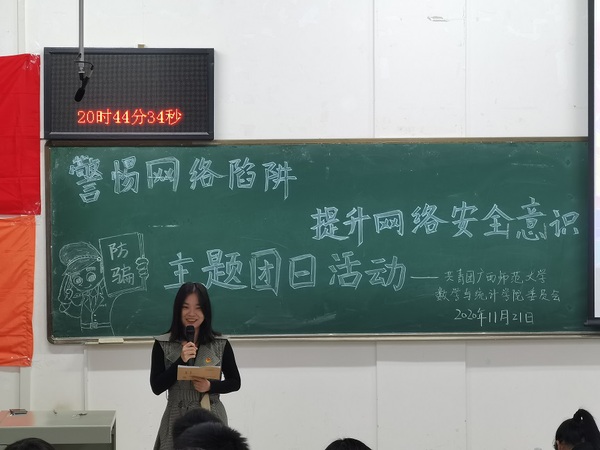 20时44分34秒
警惕网络陷阱
提升网络安全意识
防骗
主题团日活动——共青团广西师范大学
数学与统计学院委员会
2020年11月21日